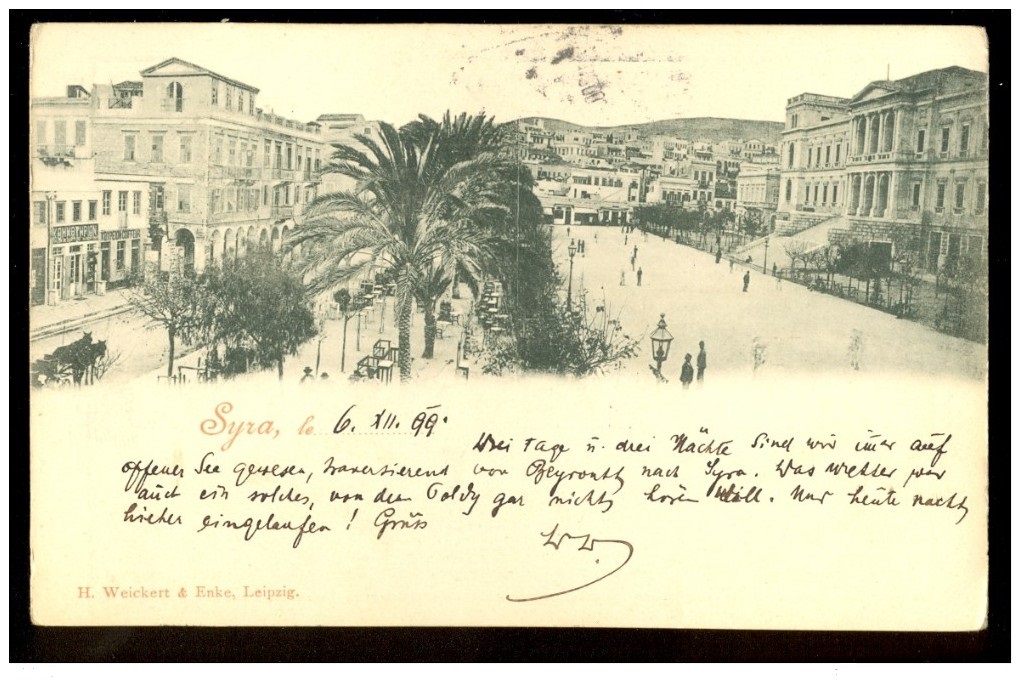 Syra, le 6. XII. 99.
Drei Tage u. drei Nächte sind wir immer auf
offener See gewesen, traversierend von Beyrouth nach Syra. Das Wetter war
auch ein solches, von dem Poldy gar nichts hören will. Nur heute nacht
hieher eingelaufen! Gruss
H. Weickert & Enke, Leipzig.